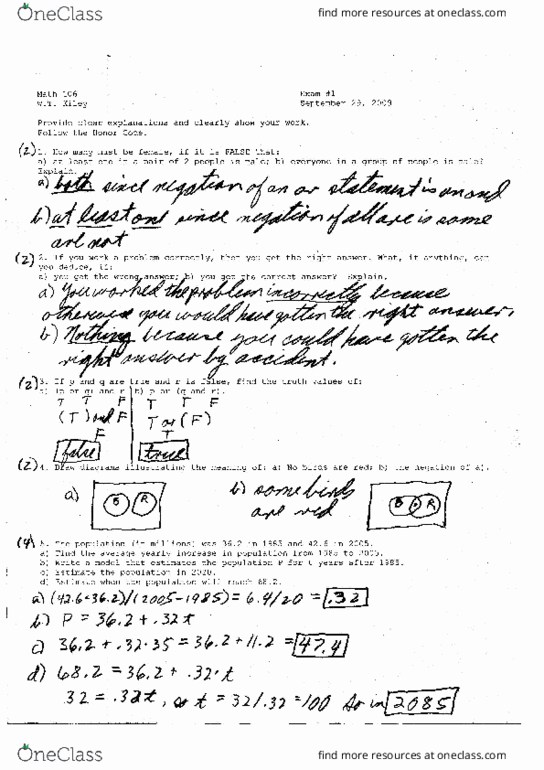 OneClass
find more resources at oneclass.com
Math 106
Exam #1
W.T. Kiley
September 29, 2009
Provide clear explanations and clearly show your work.
Follow the Honor Code.
(2) 1. How many must be female, if it is FALSE that:
a) at least one in a pair of 2 people is male; b) everyone in a group of people is male?
Explain.
a) both since negation of an or statement is an and
b) at least one since negation of all are is some
are not
(2) 2. If you work a problem correctly, then you get the right answer. What, if anything, can
you deduce, if:
a) you get the wrong answer; b) you got the correct answer? Explain.
a) You worked the problem incorrectly because
otherwise you would have gotten the right answer.
b) Nothing because you could have gotten the
right answer by accident.
(2) 3. If p and q are true and r is false, find the truth values of:
a) (p or q) and r b) p or (q and r).
T T F T T F
(T) and F T or (F)
F T
false true
(2) 4. Draw diagrams illustrating the meaning of: a) No birds are red; b) the negation of a).
a) B R
b) some birds
are red
B R
(4) 5. The population (in millions) was 36.2 in 1985 and 42.6 in 2005.
a) Find the average yearly increase in population from 1985 to 2005.
b) Write a model that estimates the population P for t years after 1985.
c) Estimate the population in 2020.
d) Estimate when the population will reach 68.2.
a) (42.6-36.2)/(2005-1985) = 6.4/20 = .32
b) P = 36.2 + .32t
c) 36.2 + .32·35 = 36.2 + 11.2 = 47.4
d) 68.2 = 36.2 + .32·t
32 = .32t, so t = 32/.32 = 100 So in 2085
OneClass
find more resources at oneclass.com